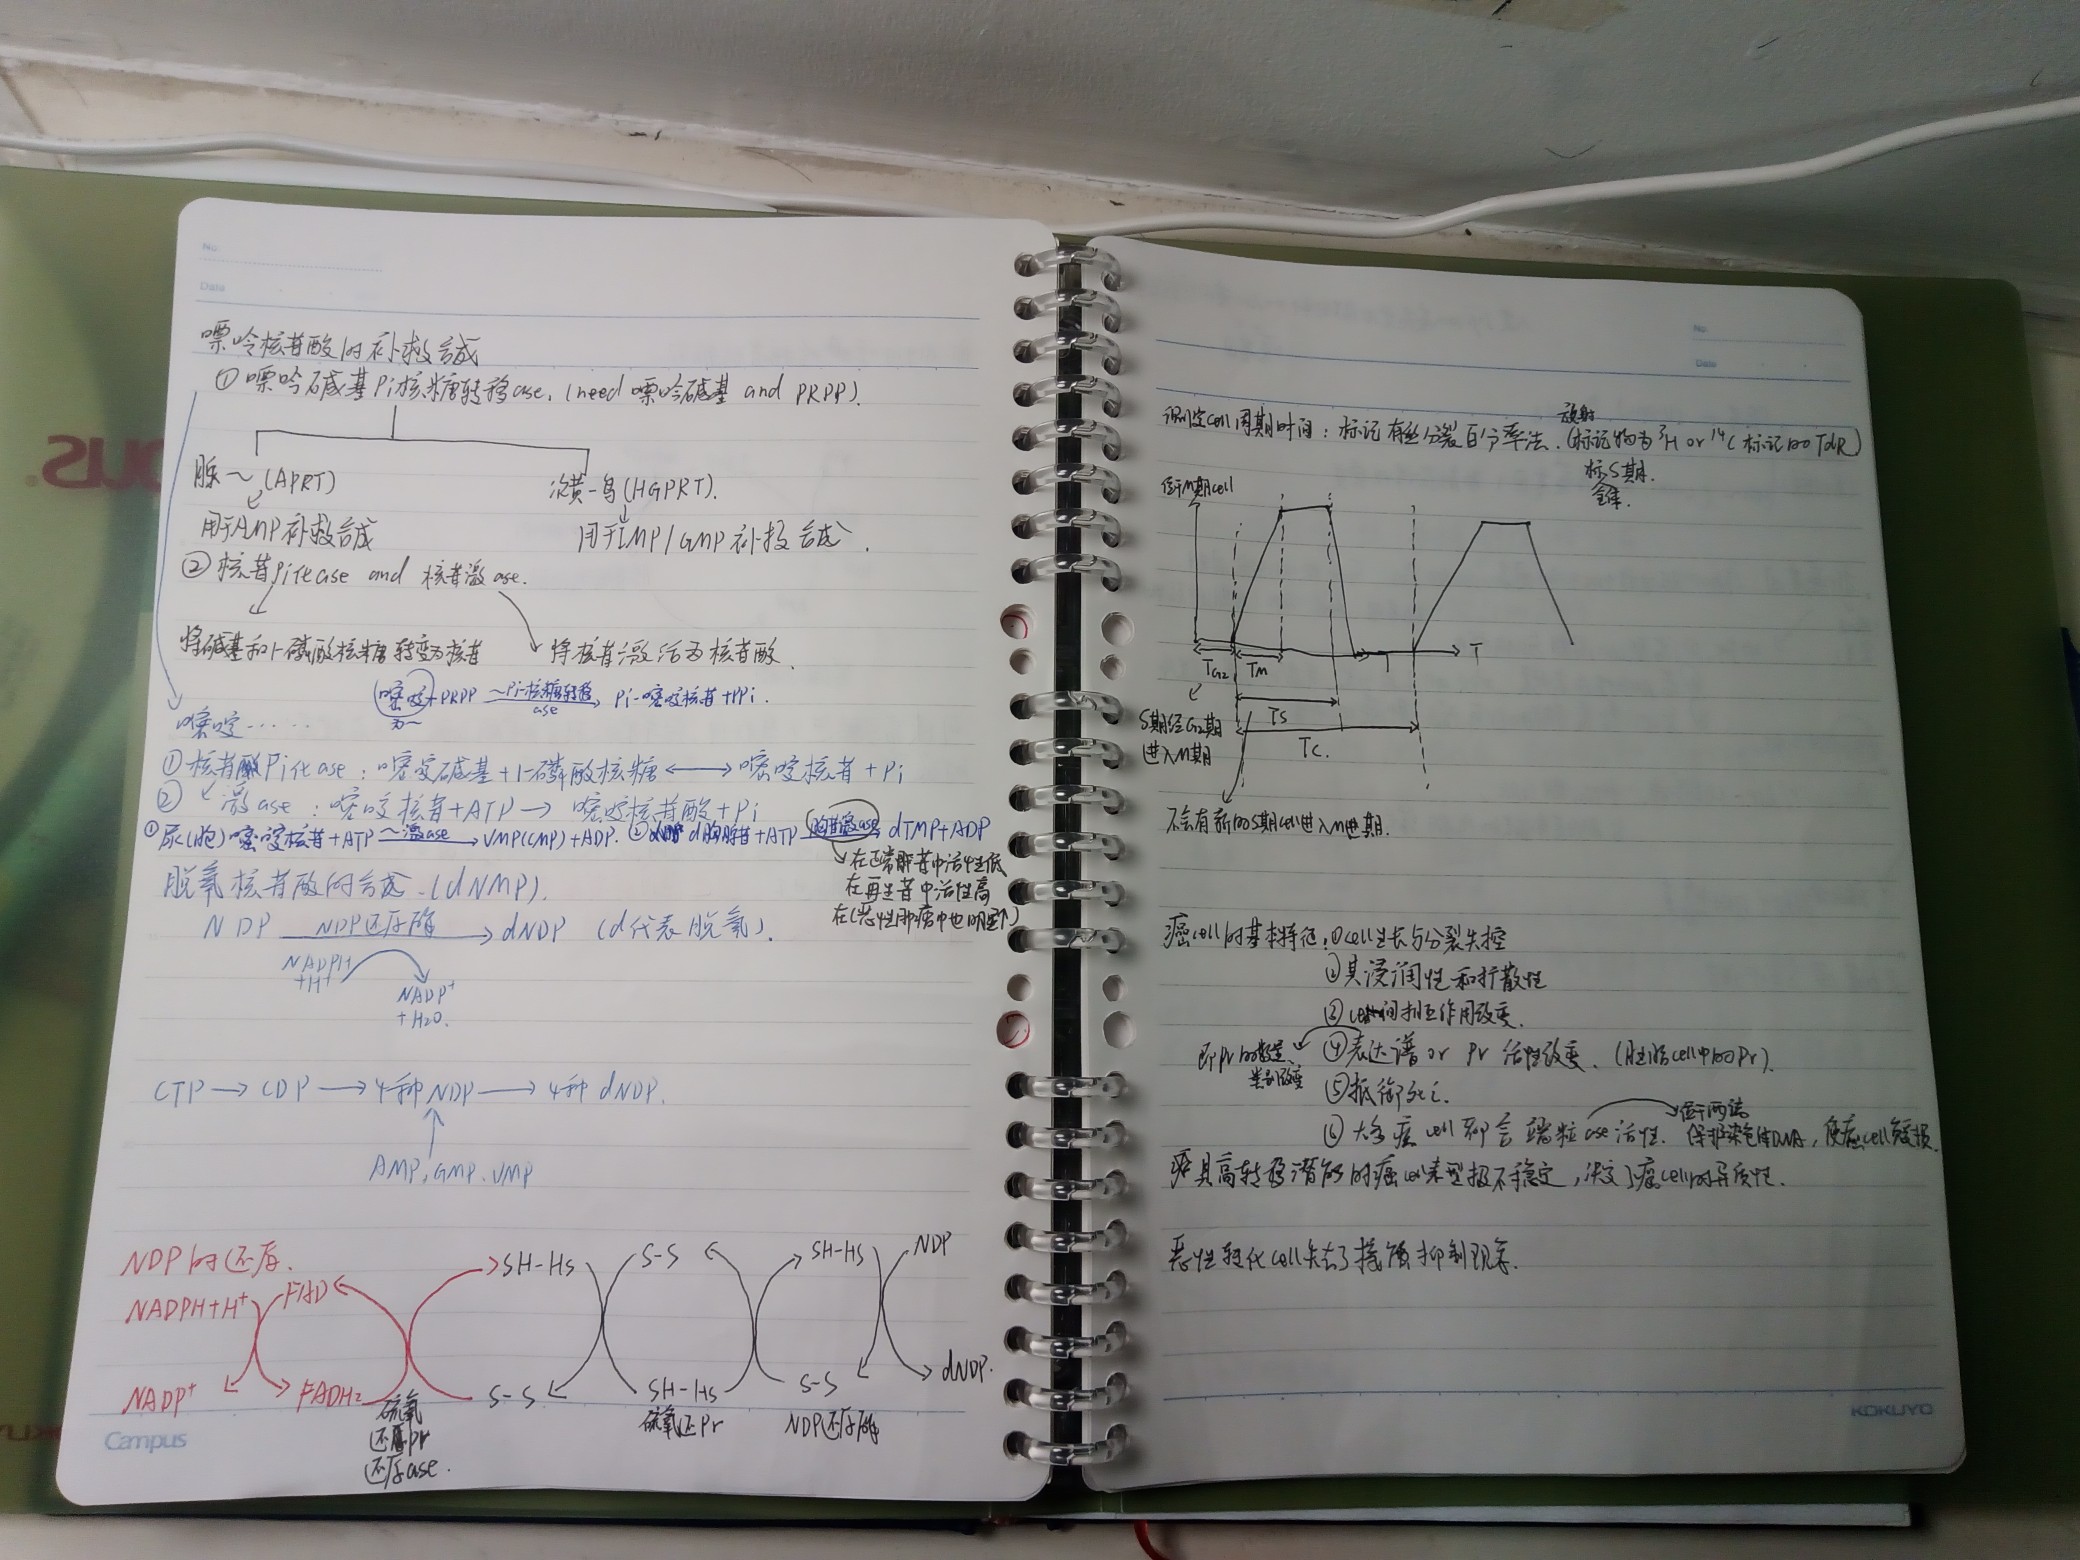 No.
Date
嘌呤核苷酸的补救合成
①嘌呤碱基Pi核糖转移ase. (need 嘌呤碱基 and PRPP).
腺~(APRT)
次黄-鸟(HGPRT).
用于AMP补救合成
用于IMP/GMP补救合成.
②核苷Pi化ase and 核苷激ase.
将碱基和1-磷酸核糖转变为核苷
将核苷激活为核苷酸.
嘧啶+PRPP ~Pi-核糖转移ase→ Pi-嘧啶核苷+PPi.
嘧啶……
①核苷Pi化ase: 嘧啶碱基+1-磷酸核糖⟷嘧啶核苷+Pi
② 激ase: 嘧啶核苷+ATP→嘧啶核苷酸+Pi
①尿(胞)嘧啶核苷+ATP ~激ase→ UMP(CMP)+ADP. ② d胸腺苷+ATP 胸苷激ase→ dTMP+ADP
在正常肝脏中活性低
在再生者中活性高
在(恶性肿瘤中也明显↑)
脱氧核苷酸的合成-(dNMP).
NDP NDP还原酶→ dNDP (d代表脱氧).
NADPH+H⁺
NADP⁺+H₂O.
CTP→CDP→4种NDP→4种dNDP.
AMP, GMP, UMP
NDP的还原.
NADPH+H⁺ FAD SH-HS S-S SH-HS NDP
NADP⁺ FADH₂ S-S SH-HS S-S dNDP.
硫氧还原Pr还原ase.
硫氧还Pr
NDP还原酶
Campus
No.
Date
测定cell周期时间: 标记有丝分裂百分率法. (标记物为³H or ¹⁴C标记的TdR)
放射
标S期.
全体.
位于M期cell
T
TG₂ TM
TS
TC.
S期经G₂期
进入M期
不会有新的S期cell进入M期.
癌cell的基本特征: ①cell生长与分裂失控
②具浸润性和扩散性
③cell间相互作用改变.
④表达谱 or Pr 活性改变. (胚胎cell中的Pr).
即Pr的数量、
类别改变
⑤抵御死亡.
⑥大多癌cell都含端粒ase活性.
位于两端
保护染色体DNA, 使癌cell免损.
具高转移潜能的癌cell表型极不稳定, 决定了癌cell的异质性.
恶性转化cell失去了接触抑制现象.
KOKUYO